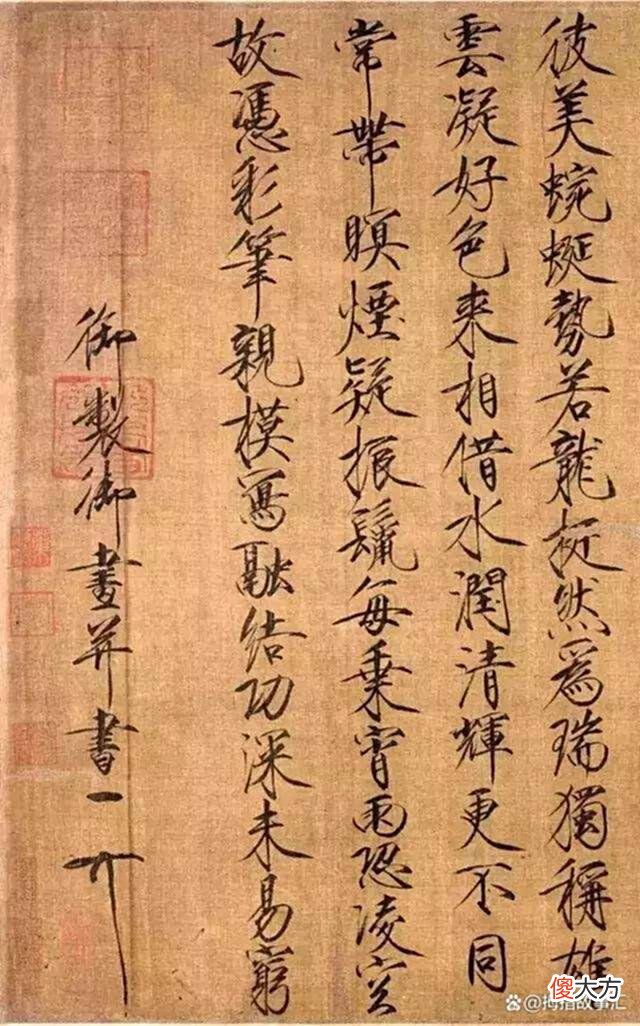 彼美蜿蜒勢若龍挺然為瑞獨稱雄
雲凝好色来相借水潤清輝更不同
常帶暝煙疑振鬣每乘宵雨恐凌空
故憑彩筆親模寫融結功深未易窮
御製御畫并書
傻大方
@拇指故事汇